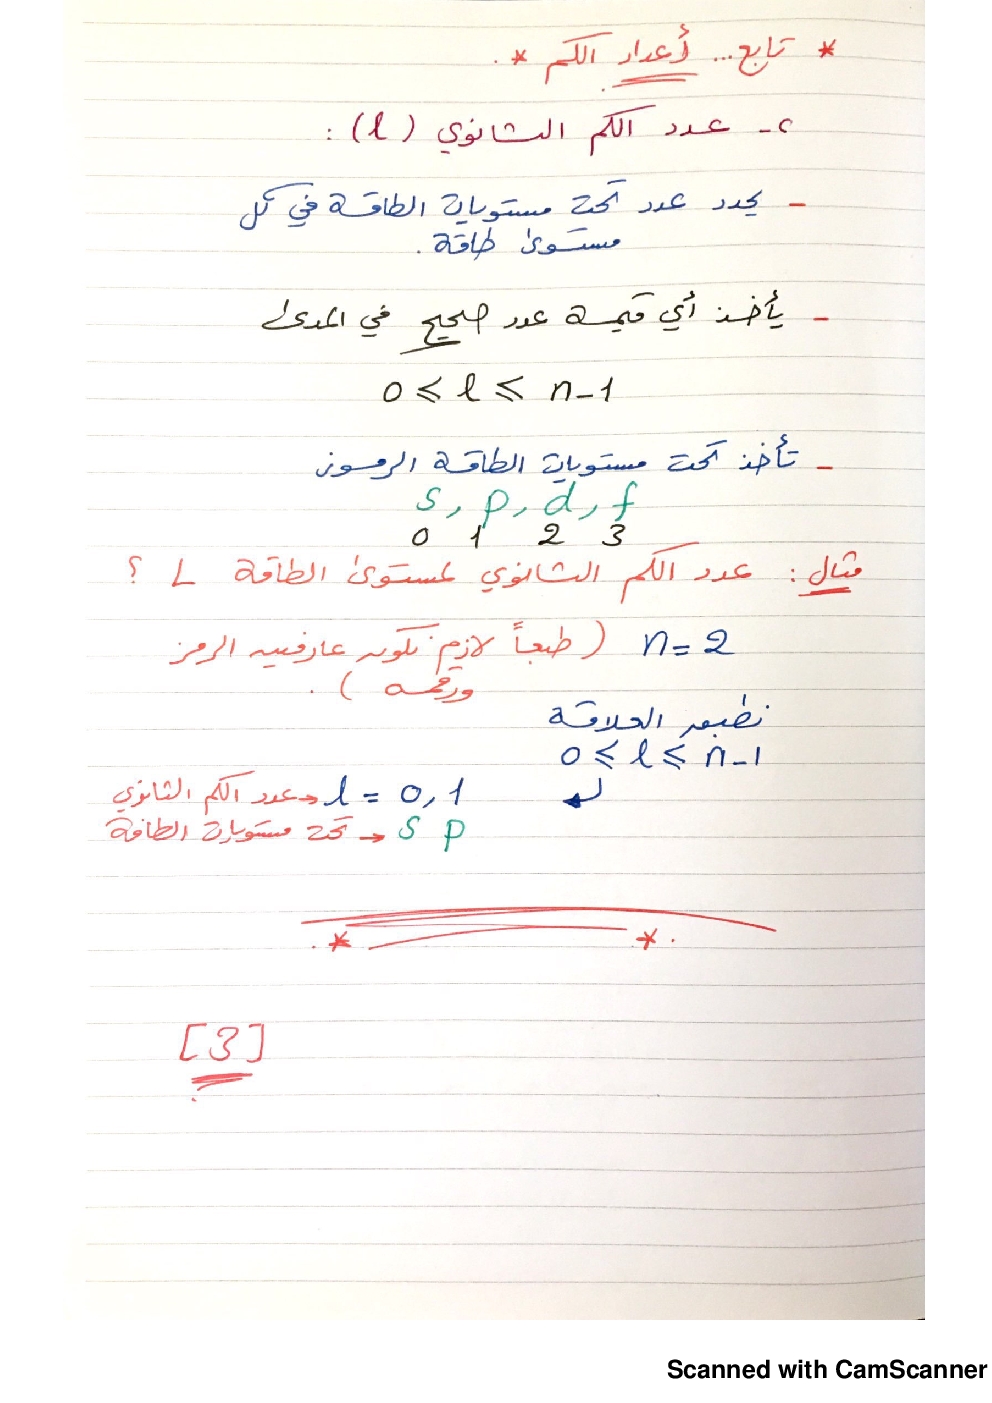 * تابع... أعداد الكم *
٢- عدد الكم الثانوي (l) :
- يحدد عدد تحت مستويات الطاقة في كل
مستوى طاقة .
- يأخذ أي قيمة عدد صحيح في المدى
0 ⩽ l ⩽ n-1
- تأخذ تحت مستويات الطاقة الرموز
s, p, d, f
0 1 2 3
مثال : عدد الكم الثانوي لمستوى الطاقة L ؟
n = 2 ( طبعاً لازم نكون عارفين الرمز
ورقمه ) .
نطبق العلاقة
0 ⩽ l ⩽ n-1
l = 0, 1 → عدد الكم الثانوي
s p → تحت مستويات الطاقة
[3]
Scanned with CamScanner